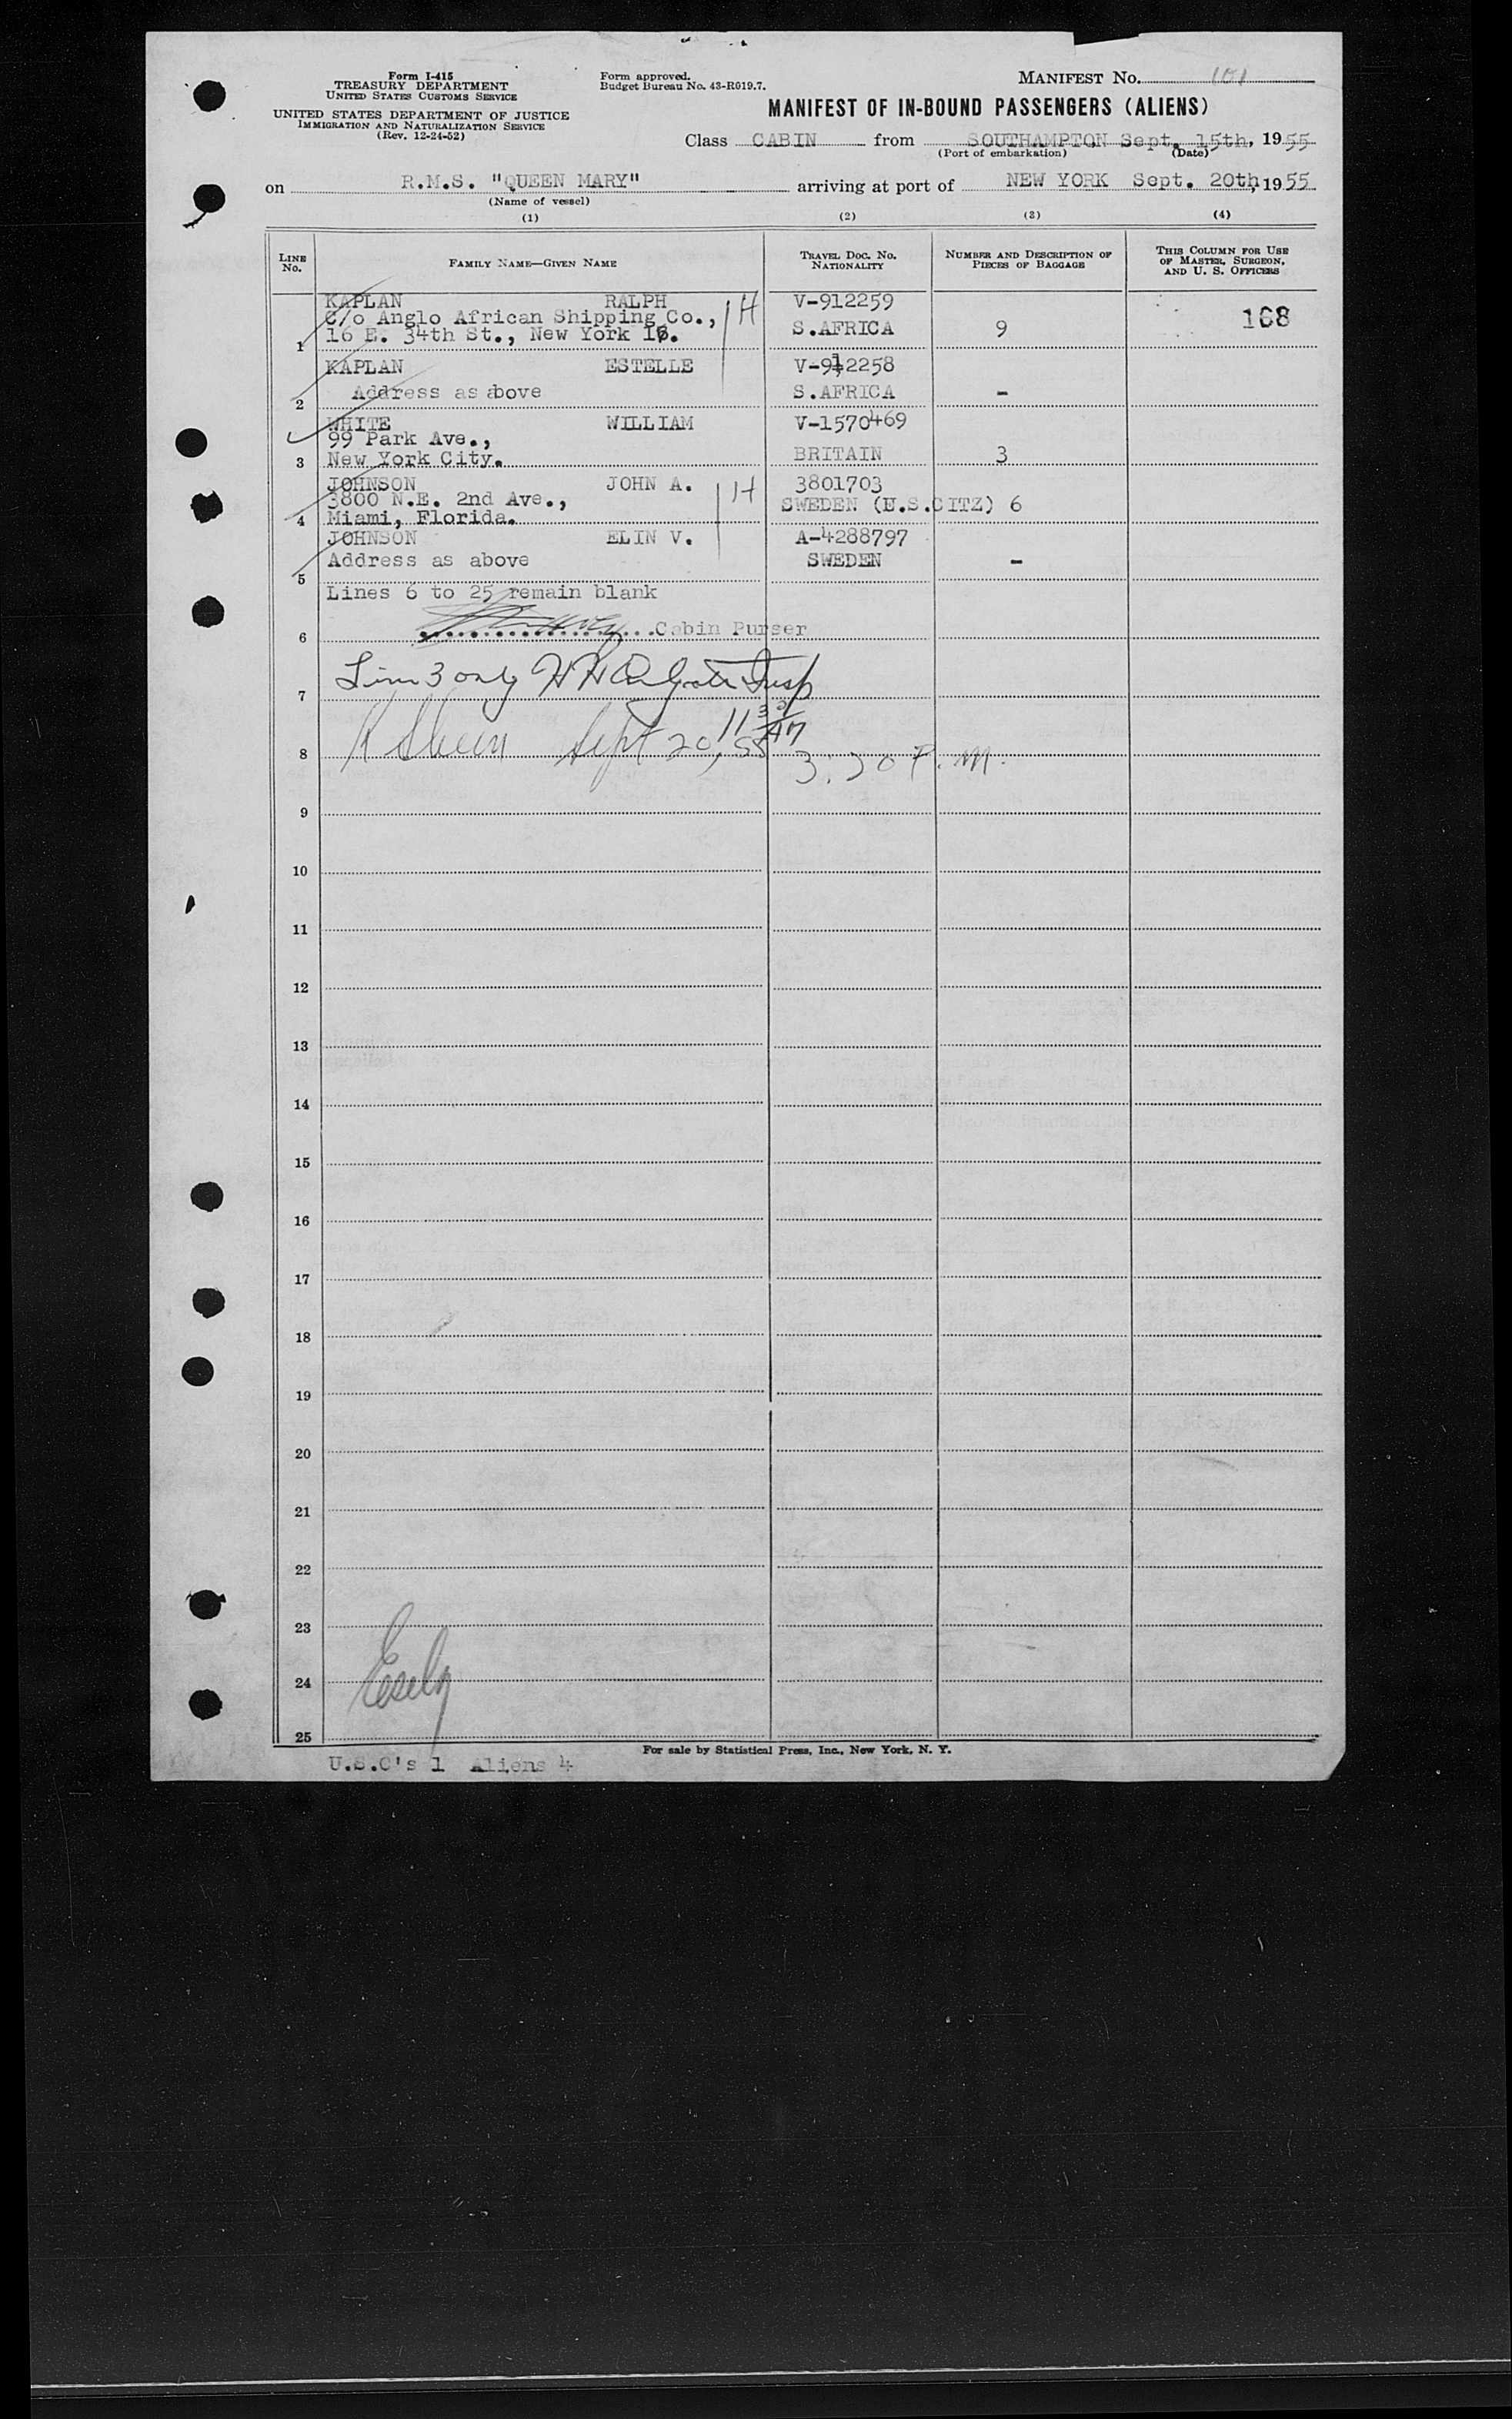 Form I-415
TREASURY DEPARTMENT
UNITED STATES CUSTOMS SERVICE
UNITED STATES DEPARTMENT OF JUSTICE
IMMIGRATION AND NATURALIZATION SERVICE
(Rev. 12-24-52)
Form approved.
Budget Bureau No. 43-R019.7.
MANIFEST No. 101
MANIFEST OF IN-BOUND PASSENGERS (ALIENS)
Class CABIN from SOUTHAMPTON Sept. 15th, 1955
(Port of embarkation) (Date)
on R.M.S. "QUEEN MARY" arriving at port of NEW YORK Sept. 20th, 1955
(Name of vessel)
(1) (2) (3) (4)
LINE No. FAMILY NAME—GIVEN NAME TRAVEL DOC. No. NATIONALITY NUMBER AND DESCRIPTION OF PIECES OF BAGGAGE THIS COLUMN FOR USE OF MASTER, SURGEON, AND U. S. OFFICERS
KAPLAN RALPH V-912259
C/o Anglo African Shipping Co., H 168
1 16 E. 34th St., New York 16. S.AFRICA 9
KAPLAN ESTELLE V-912258
2 Address as above S.AFRICA -
WHITE WILLIAM V-1570469
99 Park Ave.,
3 New York City. BRITAIN 3
JOHNSON JOHN A. H 3801703
3800 N.E. 2nd Ave., SWEDEN (U.S.CITZ) 6
4 Miami, Florida.
JOHNSON ELIN V. A-4288797
5 Address as above SWEDEN -
Lines 6 to 25 remain blank
6 Cabin Purser
7 Line 3 only Insp
11 30 AM
8 Sept 20, 55 3:30 P.M.
9
10
11
12
13
14
15
16
17
18
19
20
21
22
23
24
25
For sale by Statistical Press, Inc., New York, N. Y.
U.S.C's 1 Aliens 4